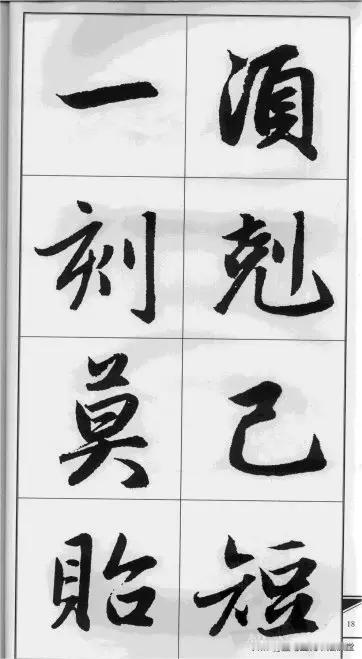 須剋己短
一刻莫貽
18